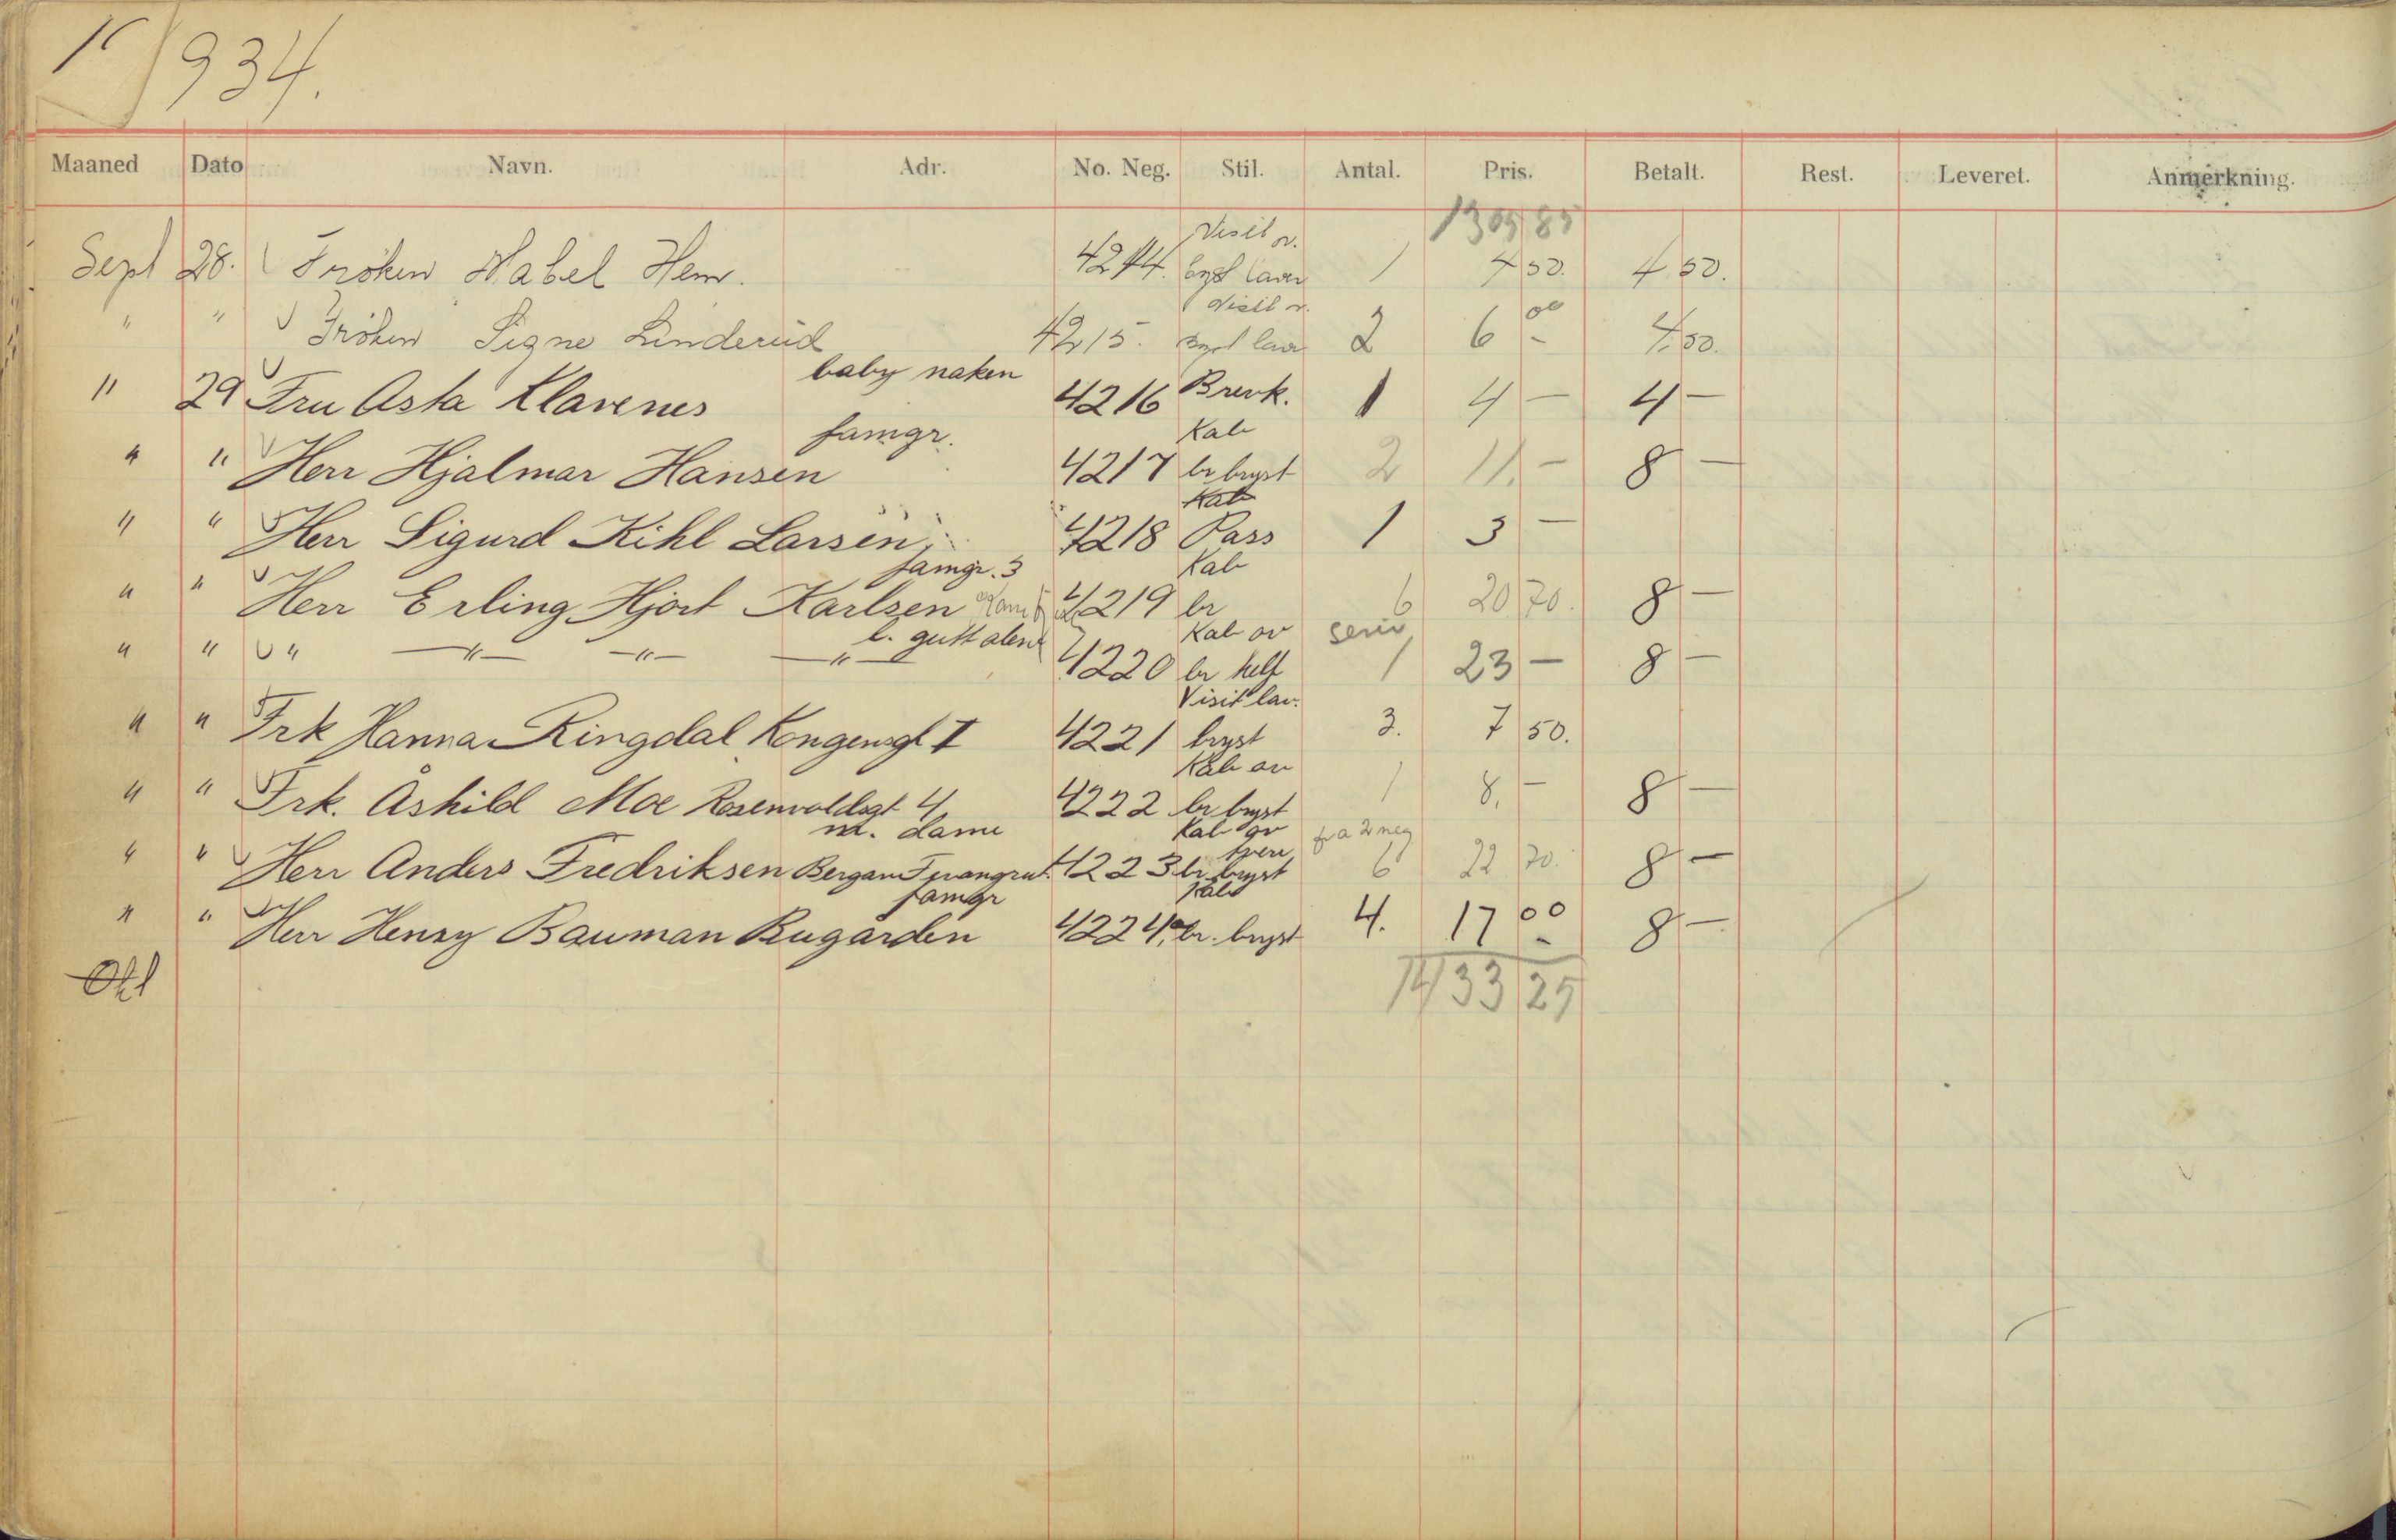 1934.
Maaned Dato Navn. Adr. No. Neg. Stil. Antal. Pris. Betalt. Rest. Leveret. Anmerkning.
1305 85
Visit v.
Sept 28. Fröken Mabel Hem. 4214. bryst laa 1 4 50. 4.50.
Visit v.
" " Fröken Signe Linderud 4215. bryst laa 2 6 00 4.50.
baby naken
" 29 Fru Asta Klavenes 4216 Brevk. 1 4 - 4 -
famgr. Kab
" " Herr Hjalmar Hansen 4217 br bryst 2 11. - 8 -
Kab
" " Herr Sigurd Kihl Larsen 4218 Pass 1 3 -
famgr. 3 Kab
" " Herr Erling Hjort Karlsen 4219 br 6 20 70. 8 -
l. gutt alene Kab ov serie
" " " -"- -"- -"- 4220 br helt 1 23 - 8 -
Visit lav.
" " Frk Hanna Ringdal Kongensgt I 4221 bryst 3. 7 50.
Kab ov
" " Frk. Åshild Moe Rosenvoldsgt 4 4222 br bryst 1 8. - 8 -
m. dame Kab ov fra 2 neg
" " Herr Anders Fredriksen Bergan 4223 br bryst 6 22 70. 8 -
famgr Kab
" " Herr Henry Bauman Bugården 4224. br. bryst 4. 17 00 8 -
Okt
1433 25